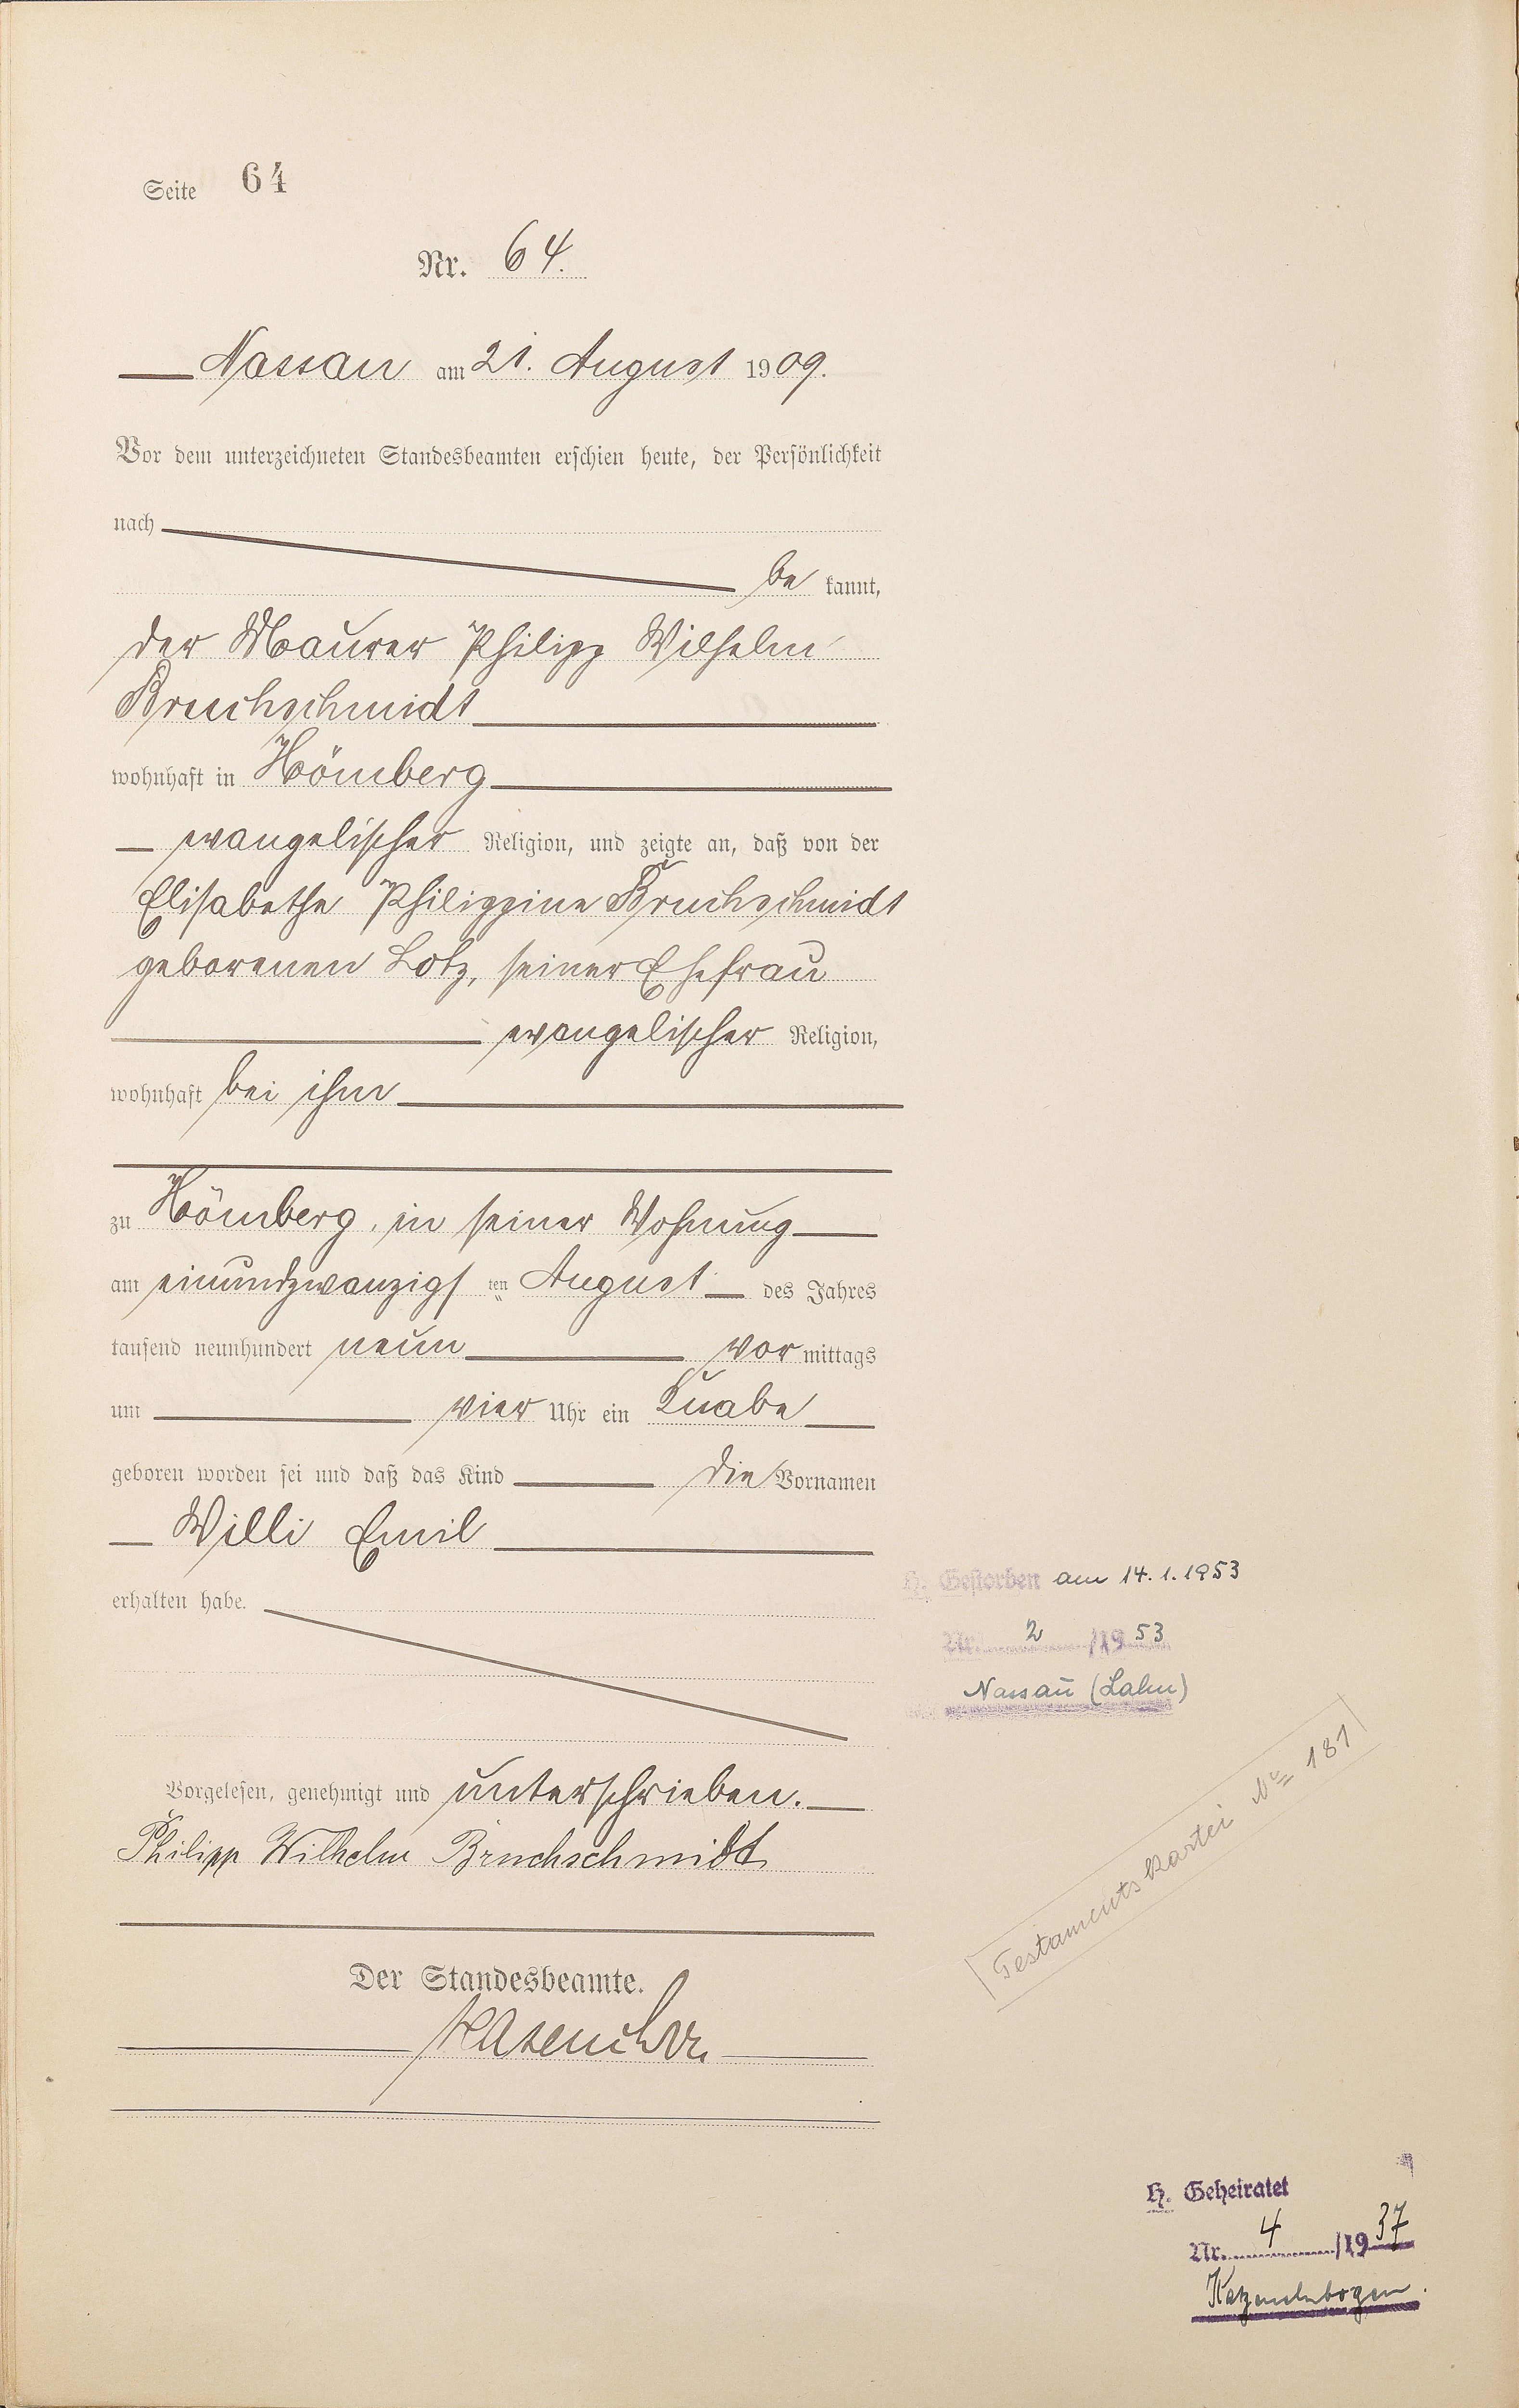 Seite 64
Nr. 64.
Nassau am 21. August 1909.
Vor dem unterzeichneten Standesbeamten erschien heute, der Persönlichkeit
nach
be kannt,
der Maurer Philipp Wilhelm
Bruchschmidt
wohnhaft in Hömberg
evangelischer Religion, und zeigte an, daß von der
Elisabethe Philippine Bruchschmidt
geborenen Lotz, seiner Ehefrau
evangelischer Religion,
wohnhaft bei ihm
zu Hömberg, in seiner Wohnung
am einundzwanzigsten August des Jahres
tausend neunhundert neun vor mittags
um vier Uhr ein Knabe
geboren worden sei und daß das Kind die Vornamen
Willi Emil
erhalten habe.
H. Gestorben am 14.1.1953
Nr. 2 /1953
Nassau (Lahn)
Testamentskartei No 181
Vorgelesen, genehmigt und unterschrieben.
Philipp Wilhelm Bruchschmidt
Der Standesbeamte.
H. Geheiratet
Nr. 4 /1937
Katzenelnbogen.